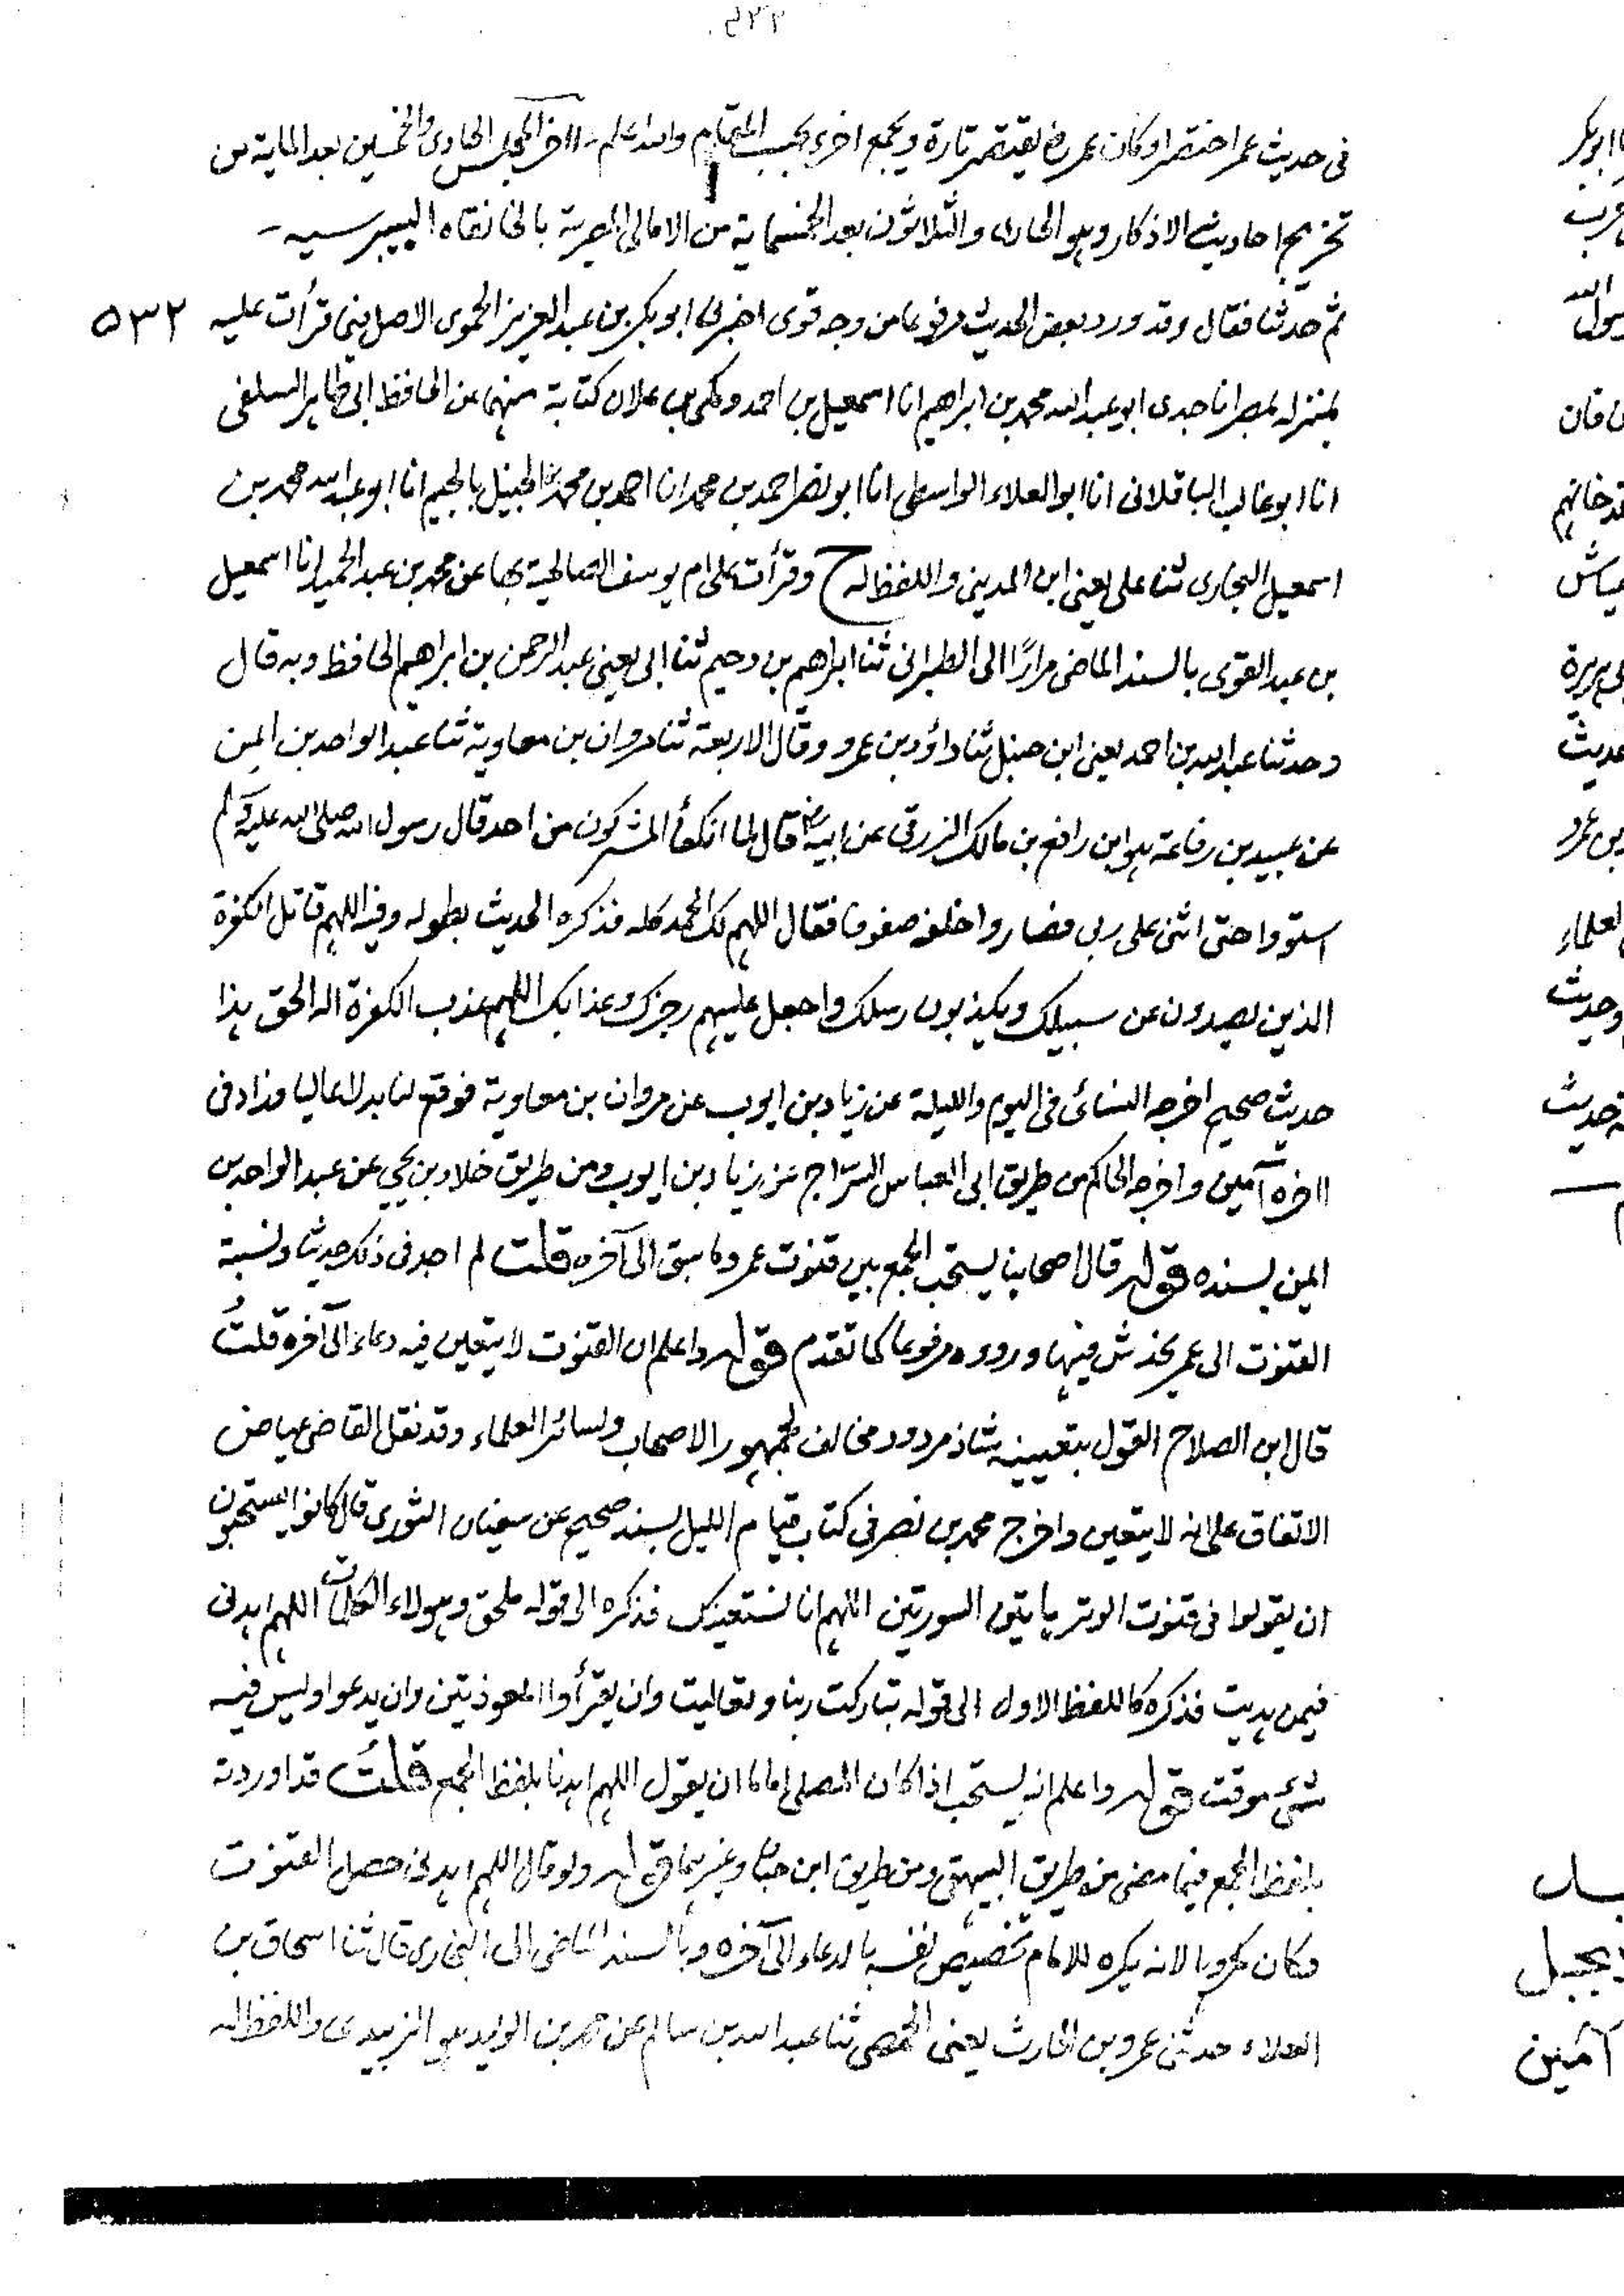 في حديث عمر اختصرا وكان عمر رض يقتصر تارة ويجمع اخرى بحسب المقام والله اعلم - اخر المجلس الحادى والخمسين بعد الماية من
تخريج احاديث الاذكار وهو الحادى والثلاثون بعد الخمسماية من الامالى المصرية بالخانقاه البيبرسيه -
ثم حدثنا فقال وقد ورد بعض الحديث مرفوعا من وجه قوى اخبرنى ابو بكر بن عبد العزيز الحموى الاصل فيما قرأت عليه ٥٣٢
بمنزله بمصر انا جدى ابو عبد الله محمد بن ابراهيم انا اسمعيل بن احمد ومكى بن علان كتابة منهما عن الحافظ ابى طاهر السلفى
انا ابو غالب الباقلانى انا ابو العلاء الواسطى انا ابو نصر احمد بن محمد انا احمد بن محمد بن الجليل بالجيم انا ابو عبد الله محمد بن
اسمعيل البخارى ثنا على يعنى ابن المدينى واللفظ له ح وقرأت على ام يوسف الصالحية بها عن محمد بن عبد الحميد انا اسمعيل
بن عبد القوى بالسند الماضى مرارًا الى الطبرانى ثنا ابراهيم بن دحيم ثنا ابى يعنى عبد الرحمن بن ابراهيم الحافظ وبه قال
وحدثنا عبد الله بن احمد يعنى ابن حنبل ثنا داؤد بن عمرو وقال الاربعة ثنا مروان بن معاوية ثنا عبد الواحد بن ايمن
عن عبيد بن رفاعة هو ابن رافع بن مالك الزرقى عن ابيه رض قال لما انكفأ المشركون من احد قال رسول الله صلى الله عليه وسلم
استووا حتى اثنى على ربى فصاروا خلفه صفوفا فقال اللهم لك الحمد كله فذكره الحديث بطوله وفيه اللهم قاتل الكفرة
الذين يصدون عن سبيلك ويكذبون رسلك واجعل عليهم رجزك وعذابك اللهم عذب الكفرة اله الحق هذا
حديث صحيح اخرجه النسائى فى اليوم والليلة عن زياد بن ايوب عن مروان بن معاوية فوقع لنا بدلا عاليا وزاد فى
اخره آمين واخرجه الحاكم من طريق ابى العباس السّراج عن زياد بن ايوب ومن طريق خلاد بن يحيى عن عبد الواحد بن
ايمن بسنده قوله قال اصحابنا يستحب الجمع بين قنوت عمر وما سبق الى آخره قلت لم اجد فى ذلك حديثا ونسبة
القنوت الى عمر يخدش فيها وروده مرفوعا كما تقدم قوله واعلم ان القنوت لا يتعين فيه دعاء الى آخره قلتُ
قال ابن الصلاح القول بتعيينه شاذ مردود مخالف لجمهور الاصحاب ولسائر العلماء وقد نقل القاضى عياض
الاتفاق على انه لا يتعين واخرج محمد بن نصر فى كتاب قيام الليل بسند صحيح عن سفيان الثورى قال كانوا يستحبون
ان يقولوا فى قنوت الوتر بهاتين السورتين اللهم انا نستعينك فذكره الى قوله ملحق وهولاء الكلمات اللهم اهدنى
فيمن هديت فذكره كاللفظ الاول الى قوله تباركت ربنا وتعاليت وان يقرأوا المعوذتين وان يدعوا وليس فيه
شىء موقت قوله واعلم انه يستحب اذا كان المصلى اماما ان يقول اللهم اهدنا بلفظ الجمع قلتُ قد اوردته
بلفظ الجمع فيما مضى من طريق البيهقى ومن طريق ابن حبان وغيرهما قوله ولو قال اللهم اهدنى حصل القنوت
وكان مكروها لانه يكره للامام تخصيص نفسه بالدعاء الى آخره وبالسند الماضى الى البخارى قال ثنا اسحاق بن
العلاء حدثنى عمرو بن الحارث يعنى الحمصى ثنا عبد الله بن سالم عن محمد بن الوليد هو الزبيدى واللفظ له